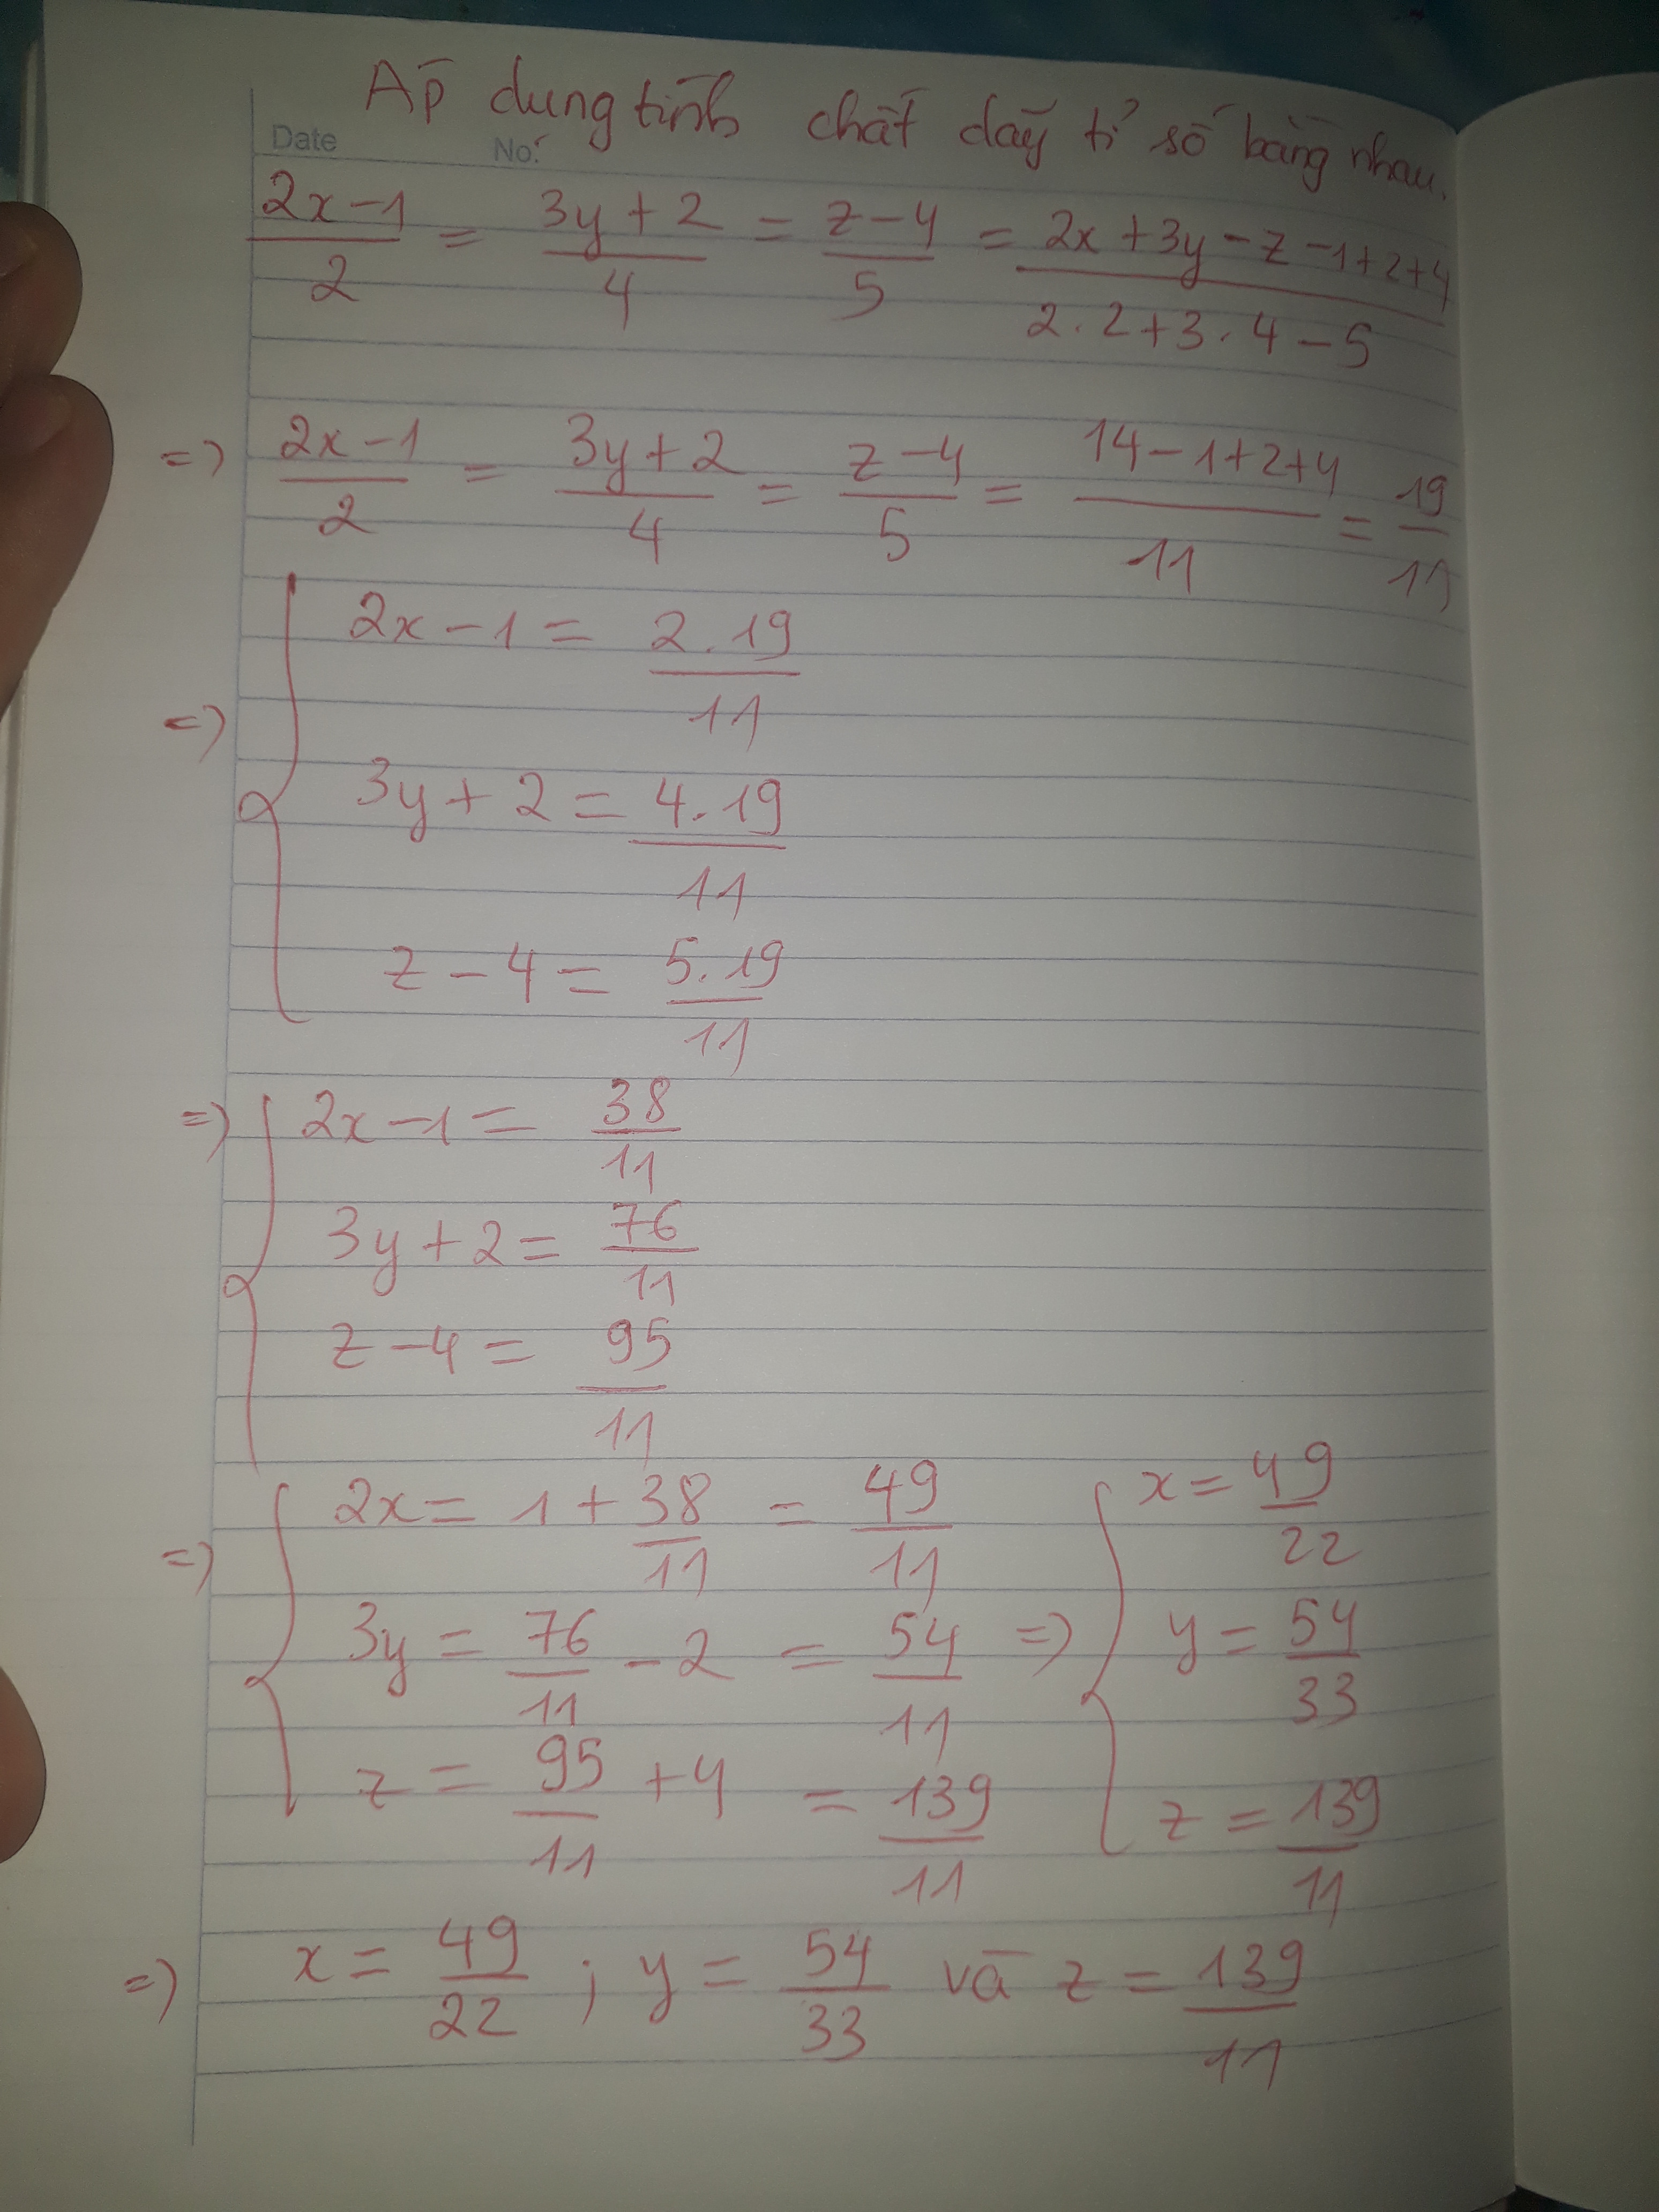 Áp dung tính chất dãy tỉ số bằng nhau.
Date No:
2x-1/2 = 3y+2/4 = z-4/5 = 2x+3y-z-1+2+4/2.2+3.4-5
=> 2x-1/2 = 3y+2/4 = z-4/5 = 14-1+2+4/11 = 19/11
2x-1 = 2.19/11
=> 3y+2 = 4.19/11
z-4 = 5.19/11
=> 2x-1 = 38/11
3y+2 = 76/11
z-4 = 95/11
2x = 1+38/11 = 49/11 x = 49/22
=> 3y = 76/11 - 2 = 54/11 => y = 54/33
z = 95/11 + 4 = 139/11 z = 139/11
=> x = 49/22 ; y = 54/33 và z = 139/11